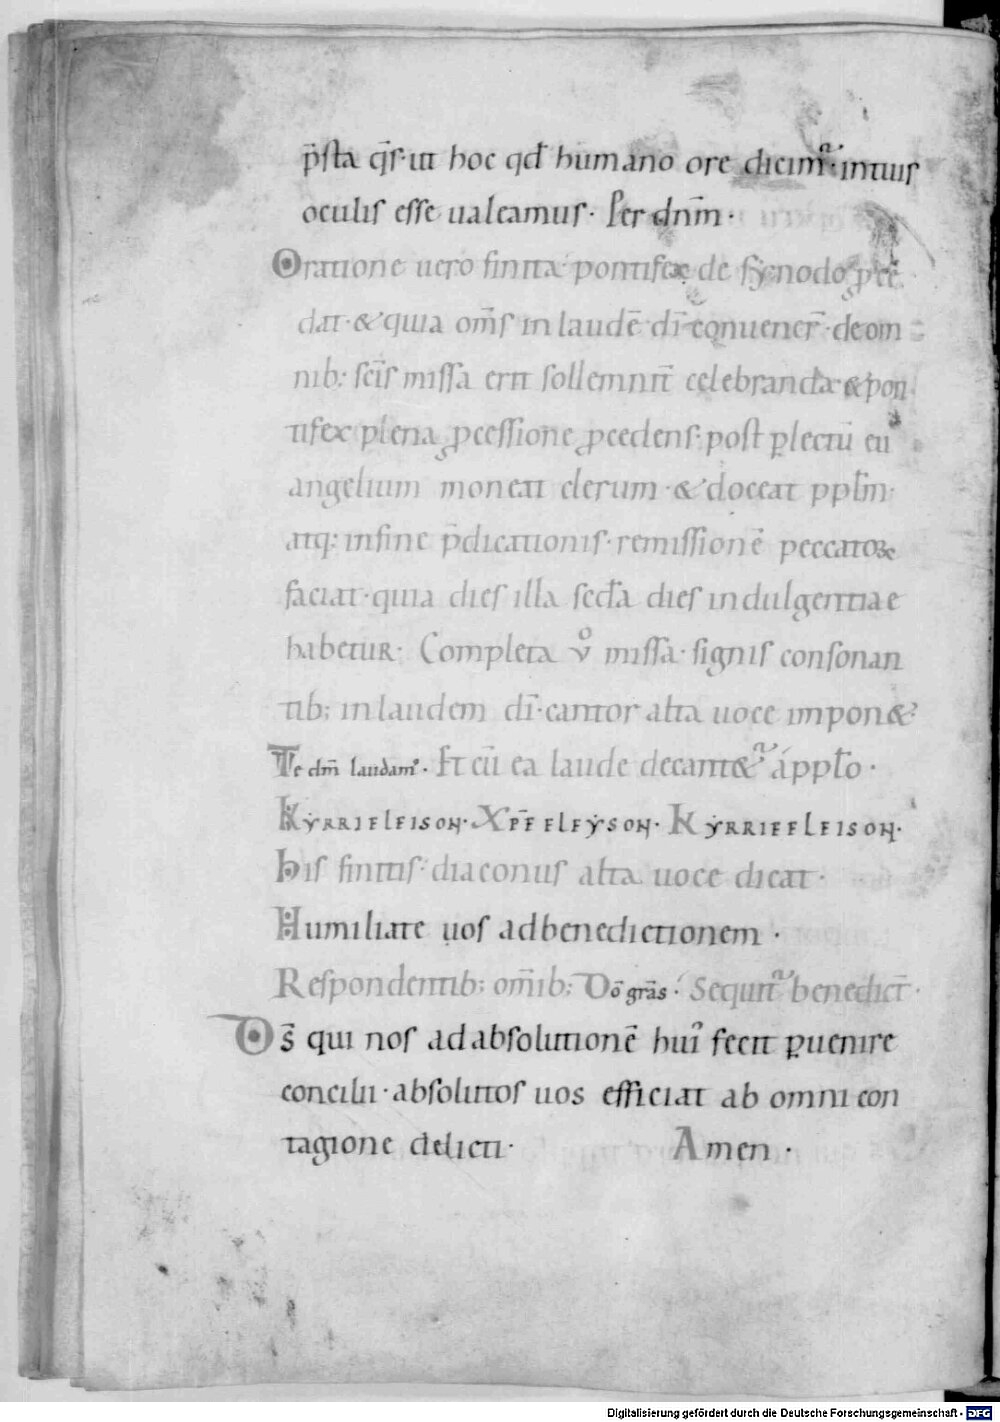 p̄sta q̄s· ut hoc qđ humano ore dicim᷒· intuis
oculis esse ualeamus· Per dn̄m·
Oratione uero finita pontifex de synodo proce
dat· & quia om̄s in laudē dī conuener̄· de om
nib; sc̄is missa erit sollemnit̄ celebranda· & pon
tifex plena processione procedens· post plectū eu
angelium moneat clerum· & doceat pplm̄·
atq; in fine p̄dicationis· remissionē peccatoꝝ
faciat· quia dies illa sec̄da dies indulgentiae
habetur· Completa ů missa· signis consonan
tib; in laudem dī· cantor alta uoce inpon&·
Te dm̄ laudam᷒· Et cū ea laude decant&᷑ á pplo·
Kyrrieleison· Xp̄e eleyson· Kyrrieeleison·
His finitis· diaconus alta uoce dicat·
Humiliate uos ad benedictionem·
Respondentib; om̄ib; Dō grās· Sequit᷑ benedict̄·
Ds̄ qui nos ad absolutionē hui᷒ fecit ꝑuenire
concilii· absolutos uos efficiat ab omni con
tagione delicti· Amen·
Digitalisierung gefördert durch die Deutsche Forschungsgemeinschaft - DFG